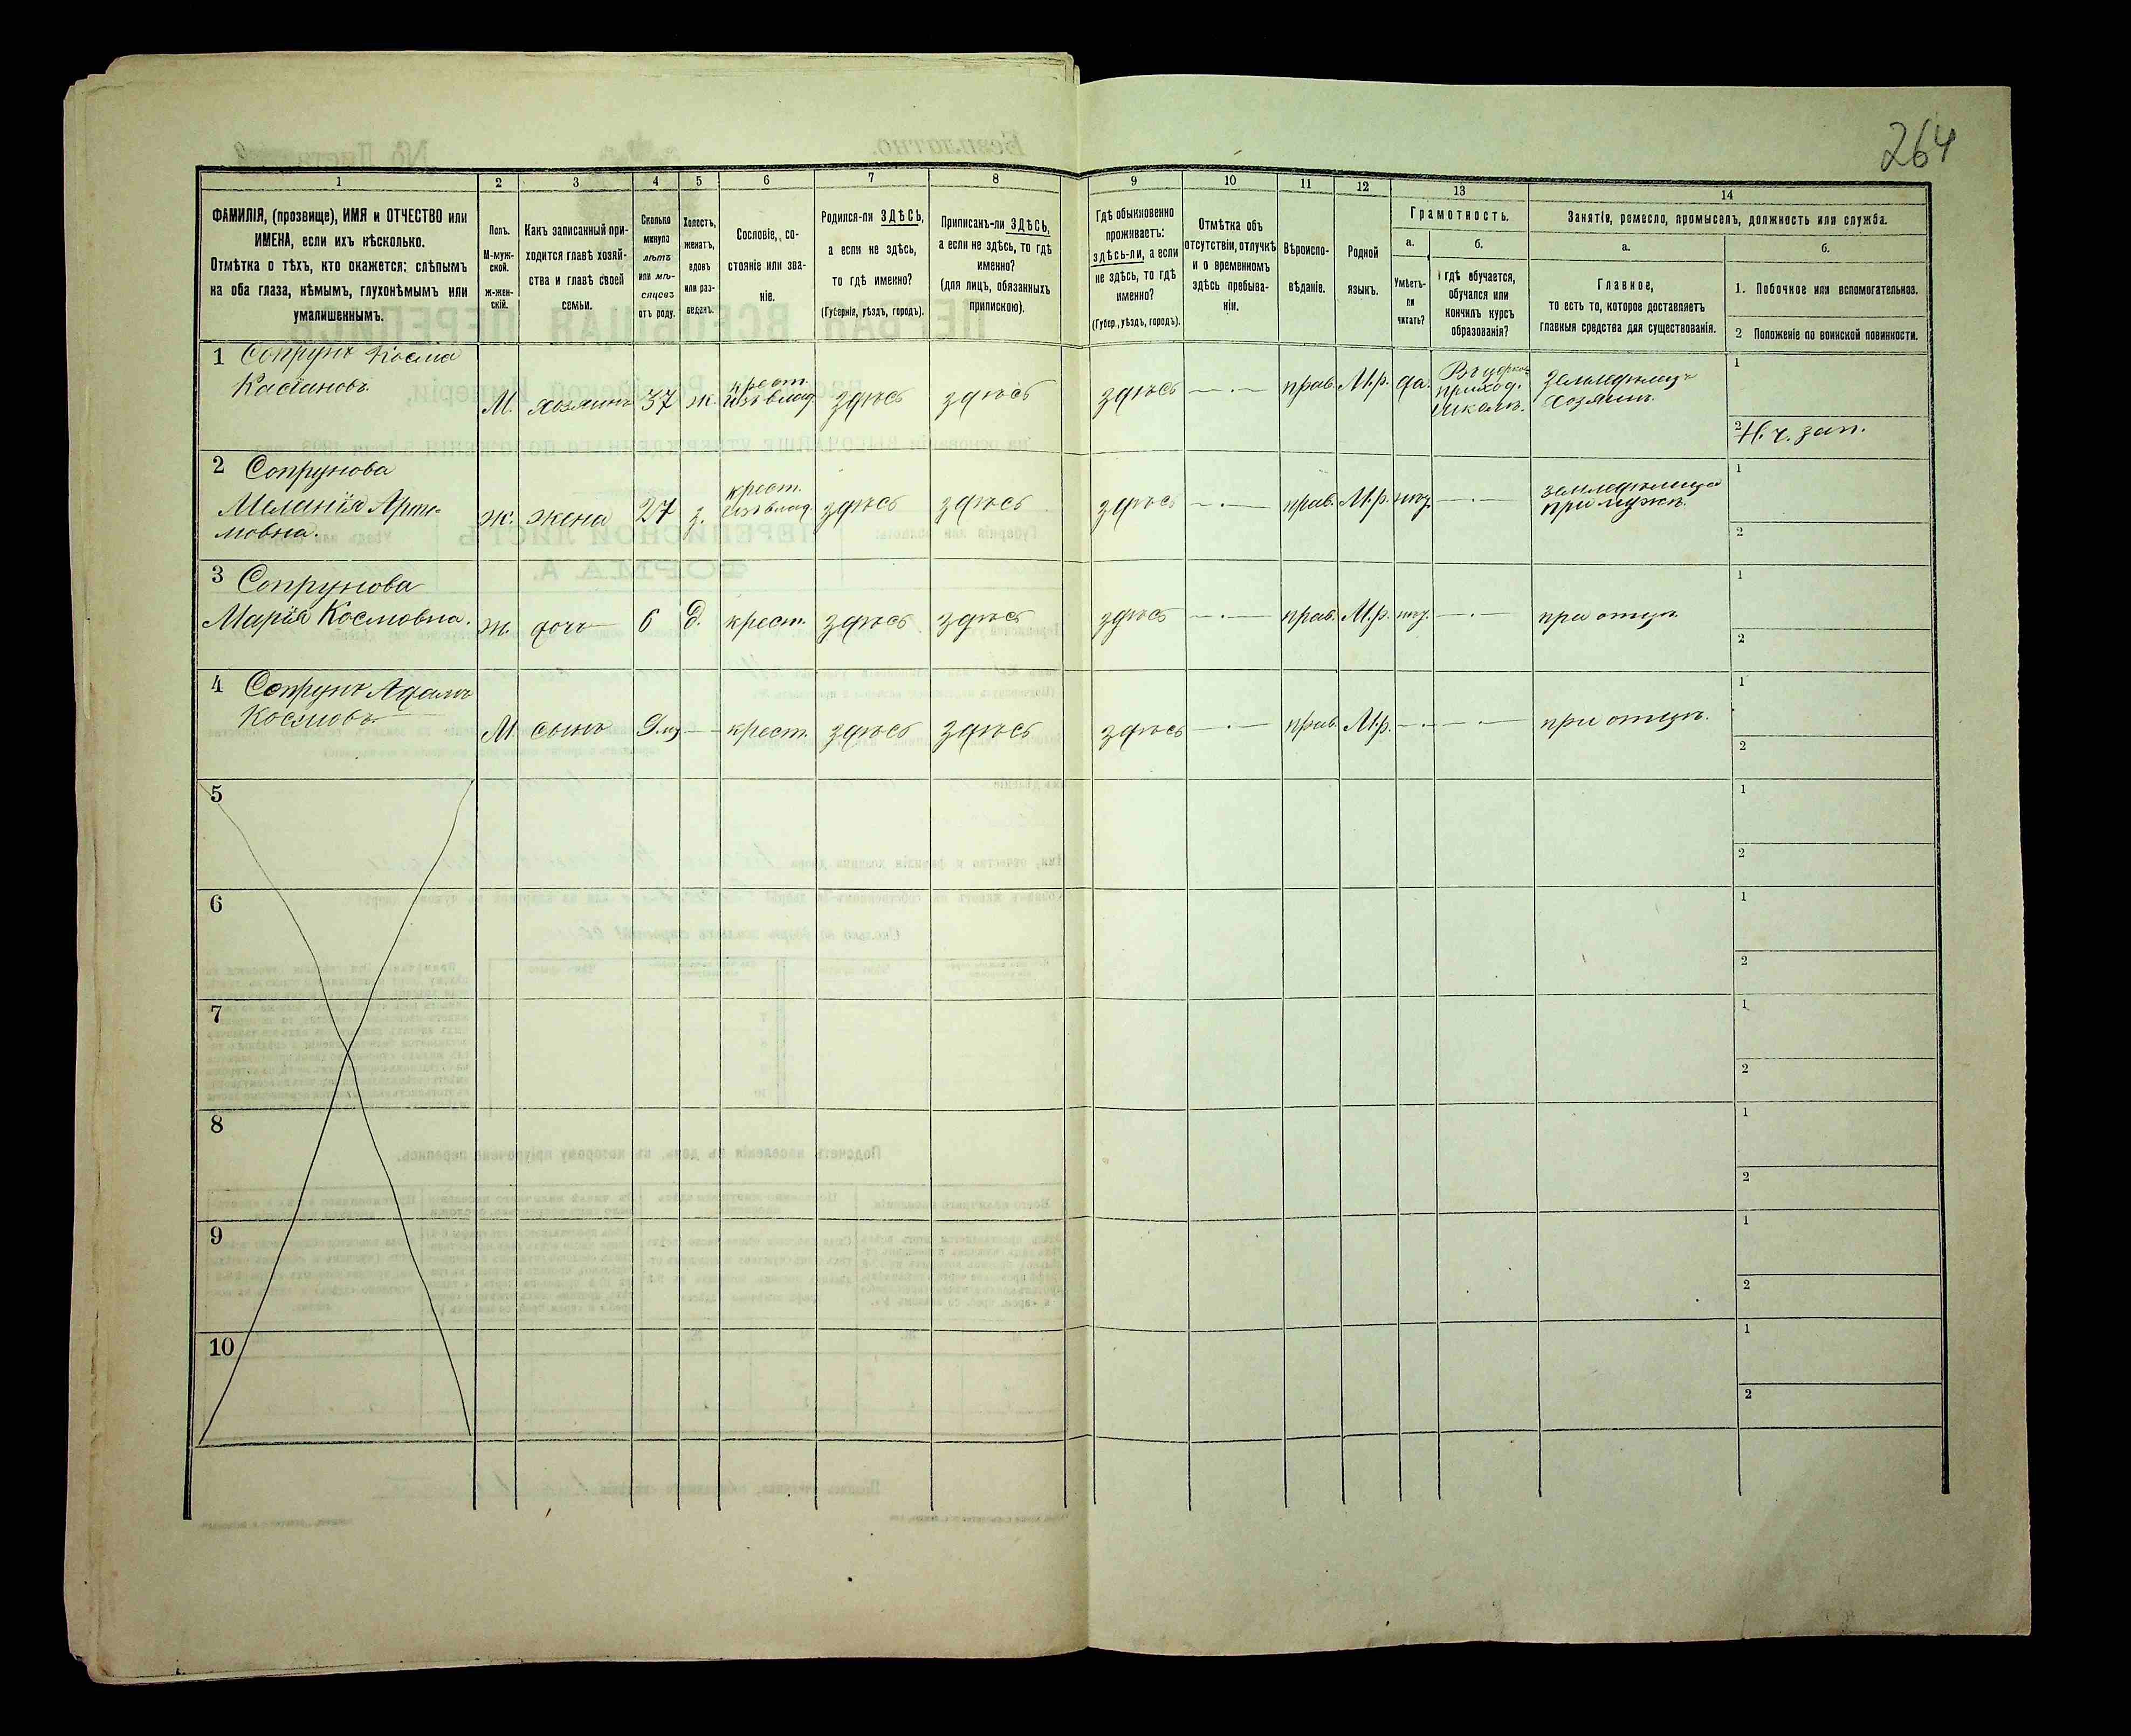 264
1 2 3 4 5 6 7 8 9 10 11 12 13 14
ФАМИЛІЯ, (прозвище), ИМЯ и ОТЧЕСТВО или
ИМЕНА, если ихъ нѣсколько.
Отмѣтка о тѣхъ, кто окажется: слѣпымъ
на оба глаза, нѣмымъ, глухонѣмымъ или
умалишеннымъ.
Полъ.
М-муж-
ской.
ж-жен-
скій.
Какъ записанный при-
ходится главѣ хозяй-
ства и главѣ своей
семьи.
Сколько
минуло
лѣтъ
или мѣ-
сяцевъ
отъ роду.
Холостъ,
женатъ,
вдовъ
или раз-
веденъ.
Сословіе, со-
стояніе или зва-
ніе.
Родился-ли ЗДѢСЬ,
а если не здѣсь,
то гдѣ именно?
(Губернія, уѣздъ, городъ).
Приписанъ-ли ЗДѢСЬ,
а если не здѣсь, то гдѣ
именно?
(для лицъ, обязанныхъ
припискою).
Гдѣ обыкновенно
проживаетъ:
здѣсь-ли, а если
не здѣсь, то гдѣ
именно?
(Губер., уѣздъ, городъ).
Отмѣтка объ
отсутствіи, отлучкѣ
и о временномъ
здѣсь пребыва-
ніи.
Вѣроиспо-
вѣданіе.
Родной
языкъ.
Грамотность.
а.
Умѣетъ-
ли
читать?
б.
гдѣ обучается,
обучался или
кончилъ курсъ
образованія?
Занятіе, ремесло, промыселъ, должность или служба.
а.
Главное,
то есть то, которое доставляетъ
главныя средства для существованія.
б.
1. Побочное или вспомогательное.
2 Положеніе по воинской повинности.
1 Сопрунъ Косма
Касіановъ.
М. хозяинъ 37 ж. крест.
изъ влад. здѣсь здѣсь здѣсь — . — прав. М.р. да.
приход.
школѣ.
Земледѣлецъ
хозяинъ.
1
2 Н. ч. зап.
2 Сопрунова
Меланія Арте-
мовна.
ж. жена 27 з. крест.
изъ влад. здѣсь здѣсь здѣсь — . — прав. М.р. нѣт. — . —
земледѣлица
при мужѣ.
1
2
3 Сопрунова
Марія Космовна.
ж. дочь 6 д. крест. здѣсь здѣсь здѣсь — . — прав. М.р. нѣт. — . — при отцѣ.
1
2
4 Сопрунъ Адамъ
Космовъ
М. сынъ 9 м — крест. здѣсь здѣсь здѣсь — . — прав. М.р. — . — — . — при отцѣ.
1
2
5
1
2
6
1
2
7
1
2
8
1
2
9
1
2
10
1
2